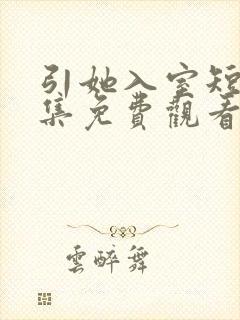 引她入室短
集免費觀看
雲醉舞